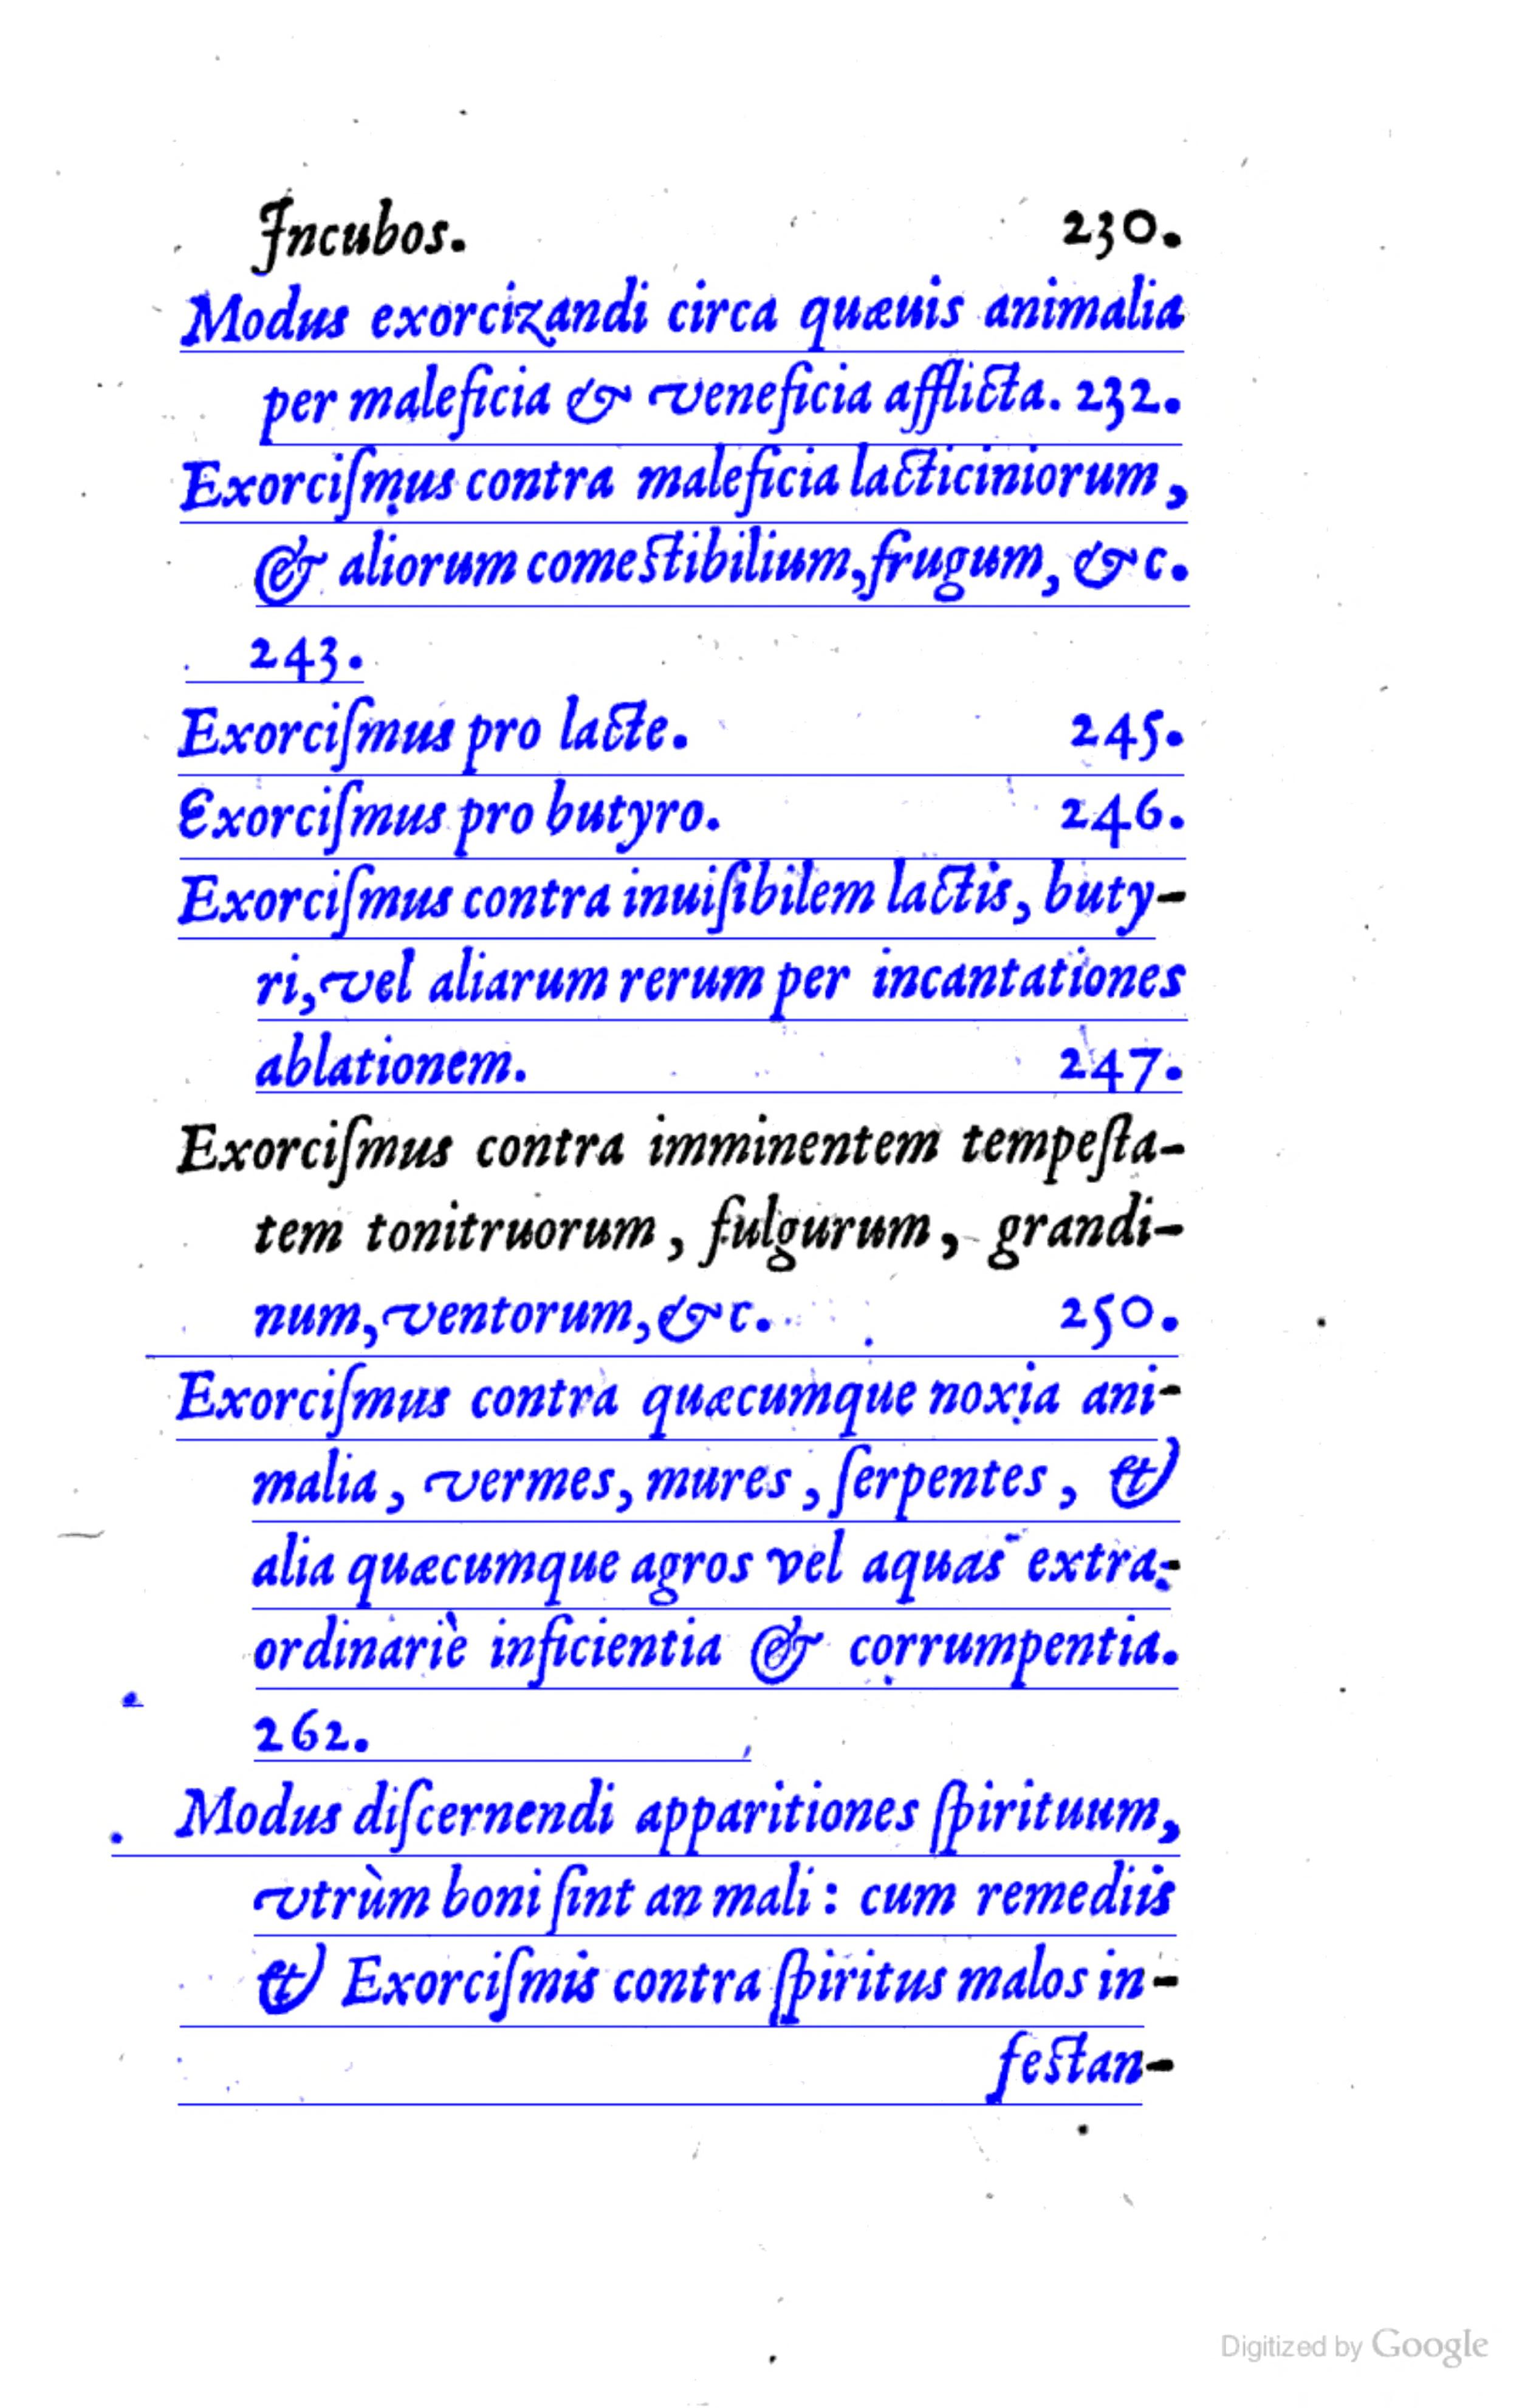 Incubos. 230.
Modus exorcizandi circa quæuis animalia
per maleficia & veneficia afflicta. 232.
Exorciſmus contra maleficia lacticiniorum,
& aliorum comestibilium, frugum, &c.
243.
Exorciſmus pro lacte. 245.
Exorciſmus pro butyro. 246.
Exorciſmus contra inuiſibilem lactis, buty-
ri, vel aliarum rerum per incantationes
ablationem. 247.
Exorciſmus contra imminentem tempeſta-
tem tonitruorum, fulgurum, grandi-
num, ventorum, &c. 250.
Exorciſmus contra quæcumque noxia ani-
malia, vermes, mures, ſerpentes, &
alia quæcumque agros vel aquas extra-
ordinariè inficientia & corrumpentia.
262.
Modus diſcernendi apparitiones ſpirituum,
vtrùm boni ſint an mali: cum remediis
& Exorciſmis contra ſpiritus malos in-
festan-
Digitized by Google